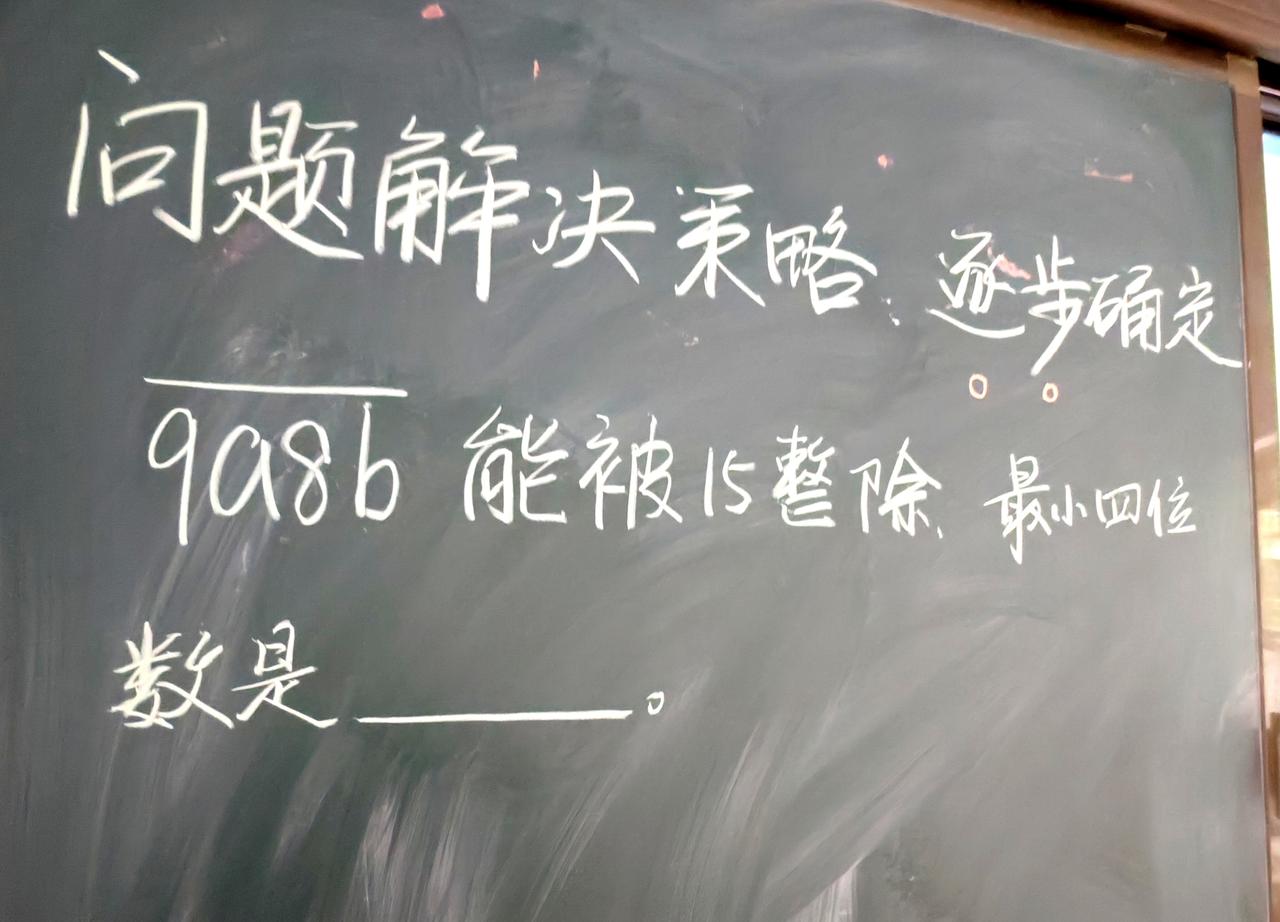 问题解决策略:逐步确定
9a8b 能被15整除,最小四位
数是______。